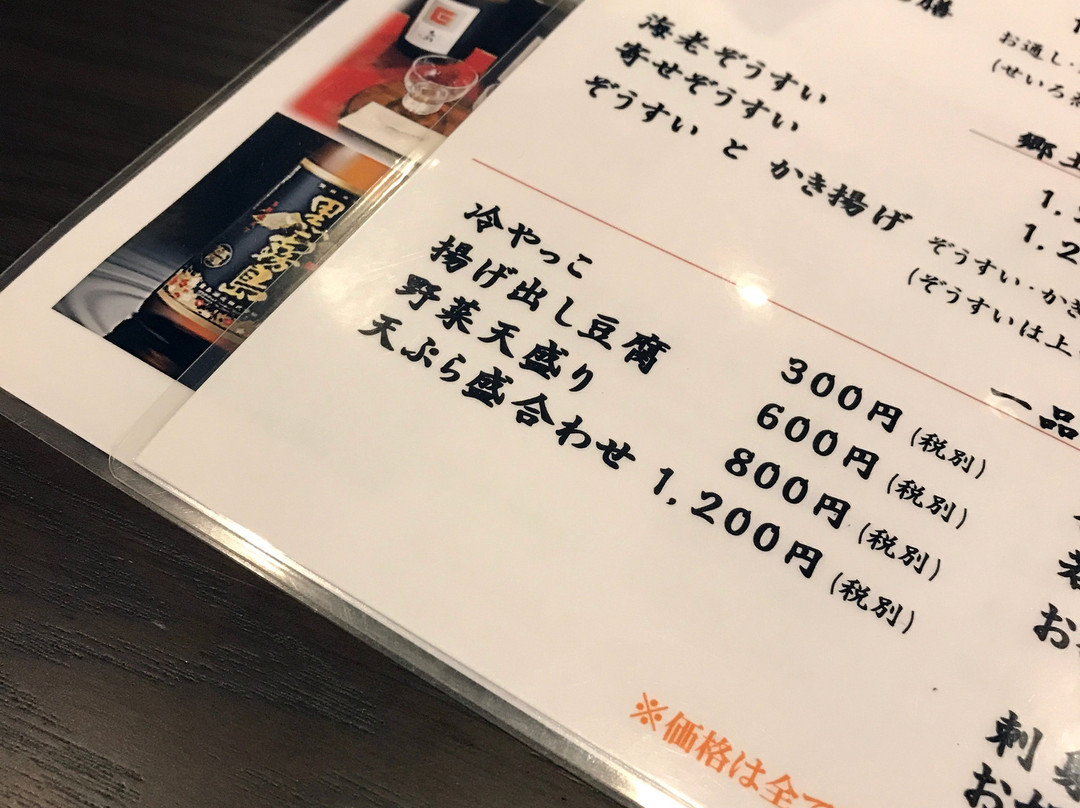 膳
海老ぞうすい
寄せぞうすい
ぞうすい と かき揚げ
お通し・
(せいろ蒸
1.
1.2
ぞうすい・かき
(ぞうすいは上
冷やっこ 300円 (税別)
揚げ出し豆腐 600円 (税別)
野菜天盛り 800円 (税別)
天ぷら盛合わせ 1,200円 (税別)
一品
お
刺身
お
※価格は全て
黒霧島